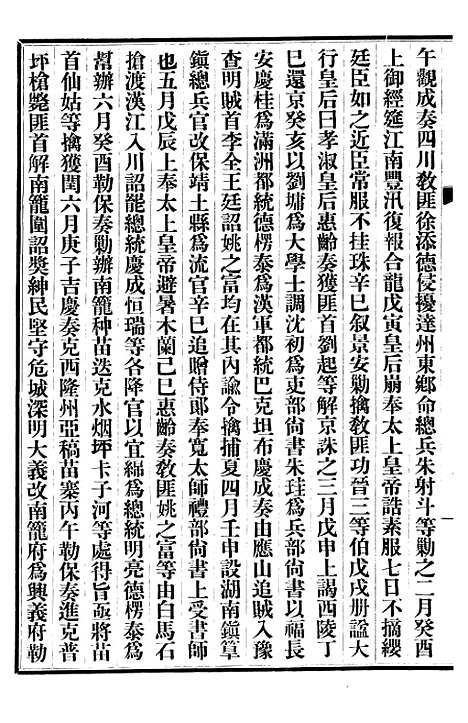 午觀成奏四川敎匪徐添德侵擾達州東鄕命總兵朱射斗等勦之二月癸酉
上御經筵江南豐汛復報合龍戊寅皇后崩奉太上皇帝誥素服七日不摘纓
廷臣如之近臣常服不挂珠辛巳叙景安勦擒敎匪功晉三等伯戊戌册諡大
行皇后曰孝淑皇后惠齡奏獲匪首劉起等解京誅之三月戊申上謁西陵丁
巳還京癸亥以劉墉爲大學士調沈初爲吏部尙書朱珪爲兵部尙書以福長
安慶桂爲滿洲都統德楞泰爲漢軍都統巴克坦布慶成奏由應山追賊入豫
查明賊首李全王廷詔姚之富均在其內諭令擒捕夏四月壬申設湖南鎭筸
鎭總兵官改保靖土縣爲流官辛巳追贈侍郞奉寬太師禮部尙書上受書師
也五月戊辰上奉太上皇帝避暑木蘭己巳惠齡奏敎匪姚之富等由白馬石
搶渡漢江入川詔罷總統慶成恒瑞等各降官以宜緜爲總統明亮德楞泰爲
幫辦六月癸酉勒保奏勦辦南籠种苗迭克水烟坪卡子河等處得旨敺將苗
首仙姑等擒獲閏六月庚子吉慶奏克西隆州亞稿苗寨丙午勒保奏進克普
坪槍斃匪首解南籠圍詔獎紳民堅守危城深明大義改南籠府爲興義府勒